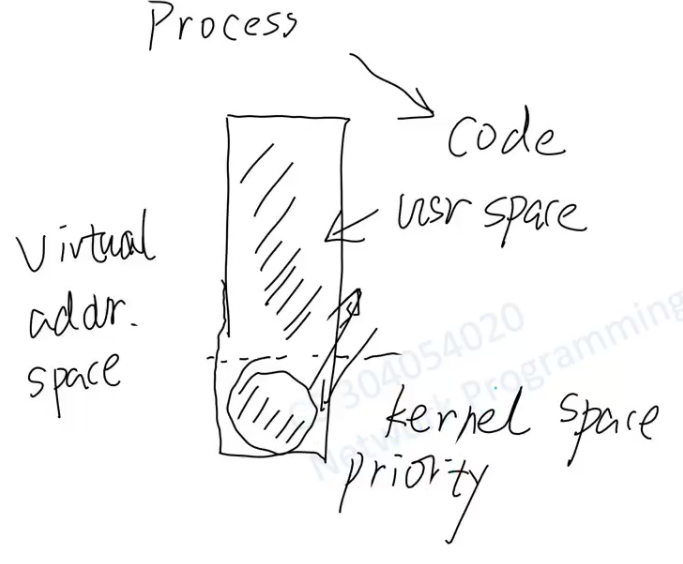 Process
code
usr space
Virtual
addr.
space
kernel space
priority
304054020
Network Programming